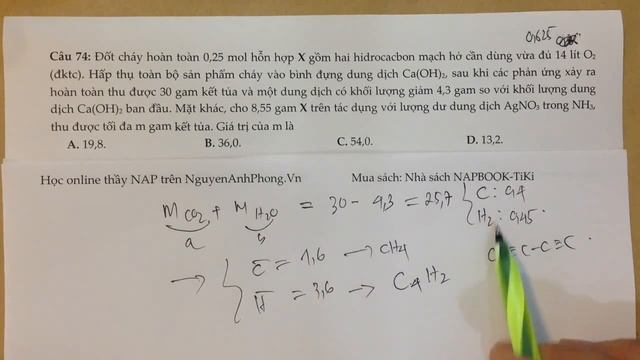 0,625
Câu 74: Đốt cháy hoàn toàn 0,25 mol hỗn hợp X gồm hai hidrocacbon mạch hở cần dùng vừa đủ 14 lít O₂
(đktc). Hấp thụ toàn bộ sản phẩm cháy vào bình đựng dung dịch Ca(OH)₂, sau khi các phản ứng xảy ra
hoàn toàn thu được 30 gam kết tủa và một dung dịch có khối lượng giảm 4,3 gam so với khối lượng dung
dịch Ca(OH)₂ ban đầu. Mặt khác, cho 8,55 gam X trên tác dụng với lượng dư dung dịch AgNO₃ trong NH₃,
thu được tối đa m gam kết tủa. Giá trị của m là
A. 19,8. B. 36,0. C. 54,0. D. 13,2.
Học online thầy NAP trên NguyenAnhPhong.Vn Mua sách: Nhà sách NAPBOOK-TiKi
m CO₂ + m H₂O = 30 - 4,3 = 25,7 { C: 0,4
a b H₂: 0,45
→ { C̄ = 1,6 → CH₄
H̄ = 3,6 → C₄H₂
≡ C - C ≡ C